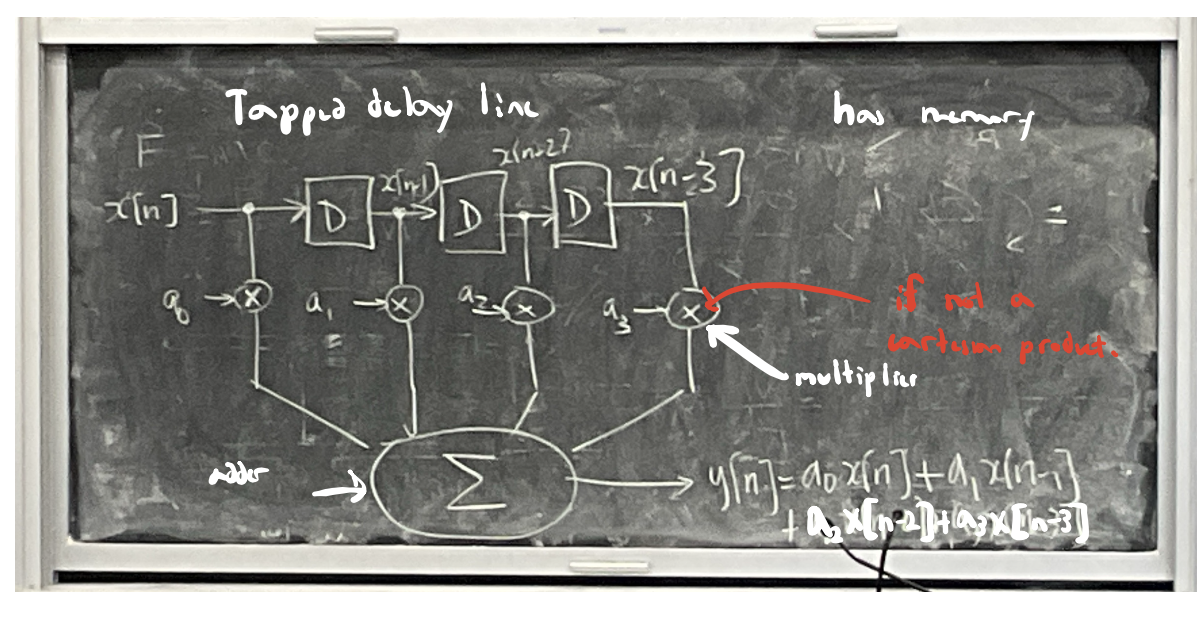 Tapped delay line
has memory
F
x[n] D x[n-1] D x[n-2] D x[n-3]
=
a0 x a1 x a2 x a3 x
if not a
cartesian product.
multiplier
adder
Σ
y[n]=a0x[n]+a1x[n-1]
+a2x[n-2]+a3x[n-3]